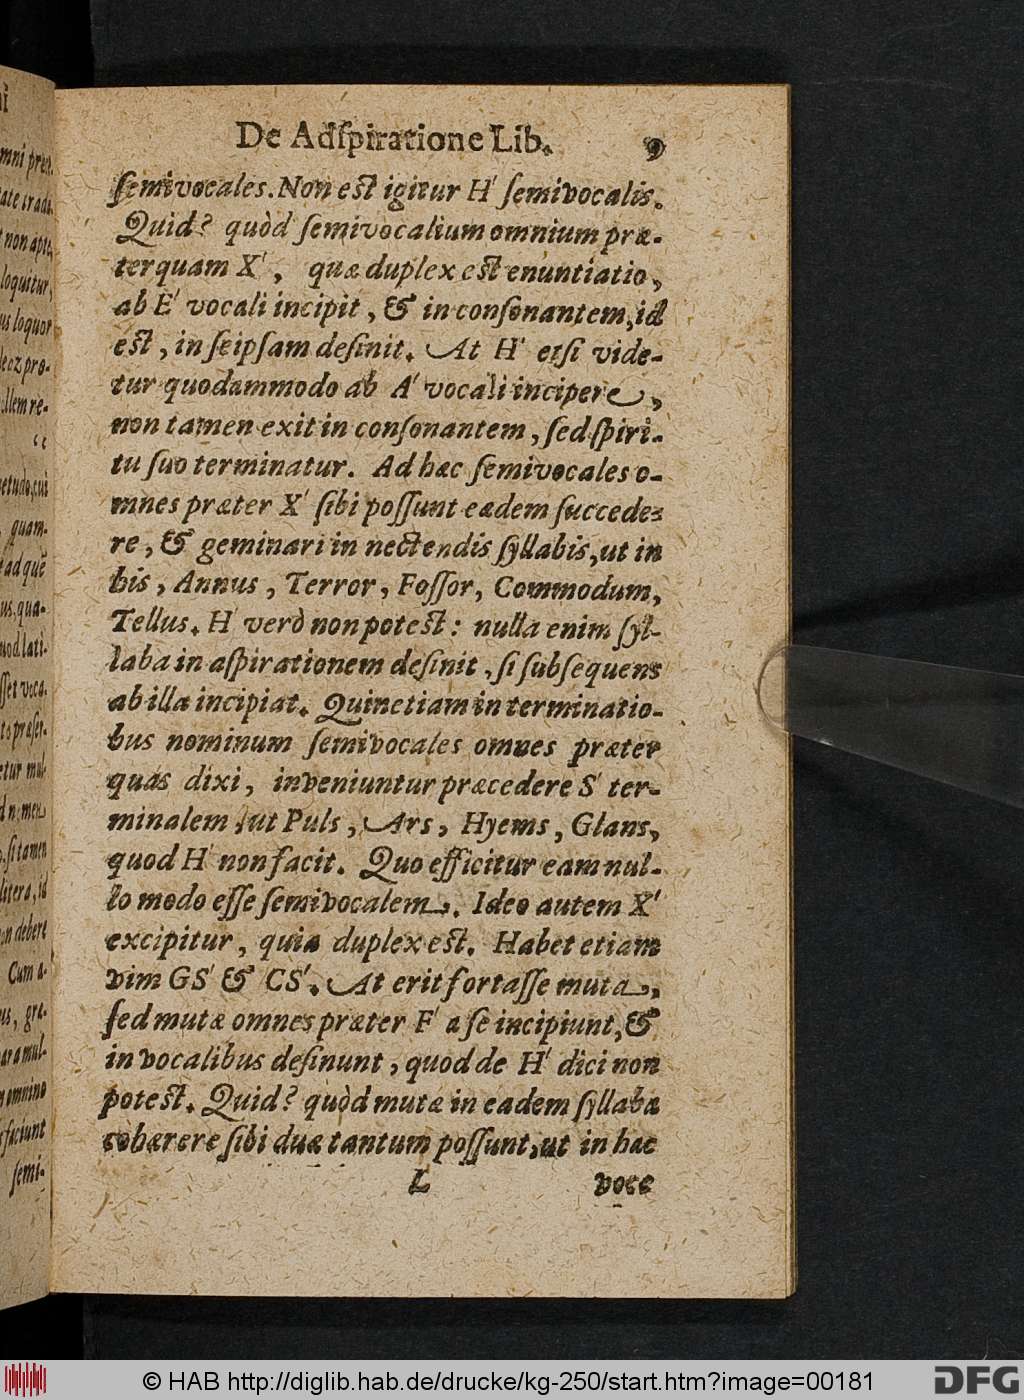 De Adſpiratione Lib. 9
ſemivocales. Non est igitur H' ſemivocalis.
Quid? quòd ſemivocalium omnium præ-
terquam X', quæ duplex est enuntiatio,
ab E' vocali incipit, & in conſonantem, id
est, in ſeipſam deſinit. At H' etſi vide-
tur quodammodo ab A' vocali incipere,
non tamen exit in conſonantem, ſed ſpiri-
tu ſuo terminatur. Ad hæc ſemivocales o-
mnes præter X' ſibi poſſunt eædem ſuccede-
re, & geminari in nectendis ſyllabis, ut in
his, Annus, Terror, Foſſor, Commodum,
Tellus. H' verò non potest: nulla enim ſyl-
laba in aſpirationem deſinit, ſi ſubſequens
ab illa incipiat. Quinetiam in terminatio-
bus nominum ſemivocales omnes præter
quas dixi, inveniuntur præcedere S' ter-
minalem, ut Puls, Ars, Hyems, Glans,
quod H' non facit. Quo efficitur eam nul-
lo modo eſſe ſemivocalem. Ideo autem X'
excipitur, quia duplex est. Habet etiam
vim GS' & CS'. At erit fortaſſe muta,
ſed mutæ omnes præter F' a ſe incipiunt, &
in vocalibus deſinunt, quod de H' dici non
potest. Quid? quòd mutæ in eadem ſyllaba
cohærere ſibi duæ tantum poſſunt, ut in hac
L voce
© HAB http://diglib.hab.de/drucke/kg-250/start.htm?image=00181
DFG